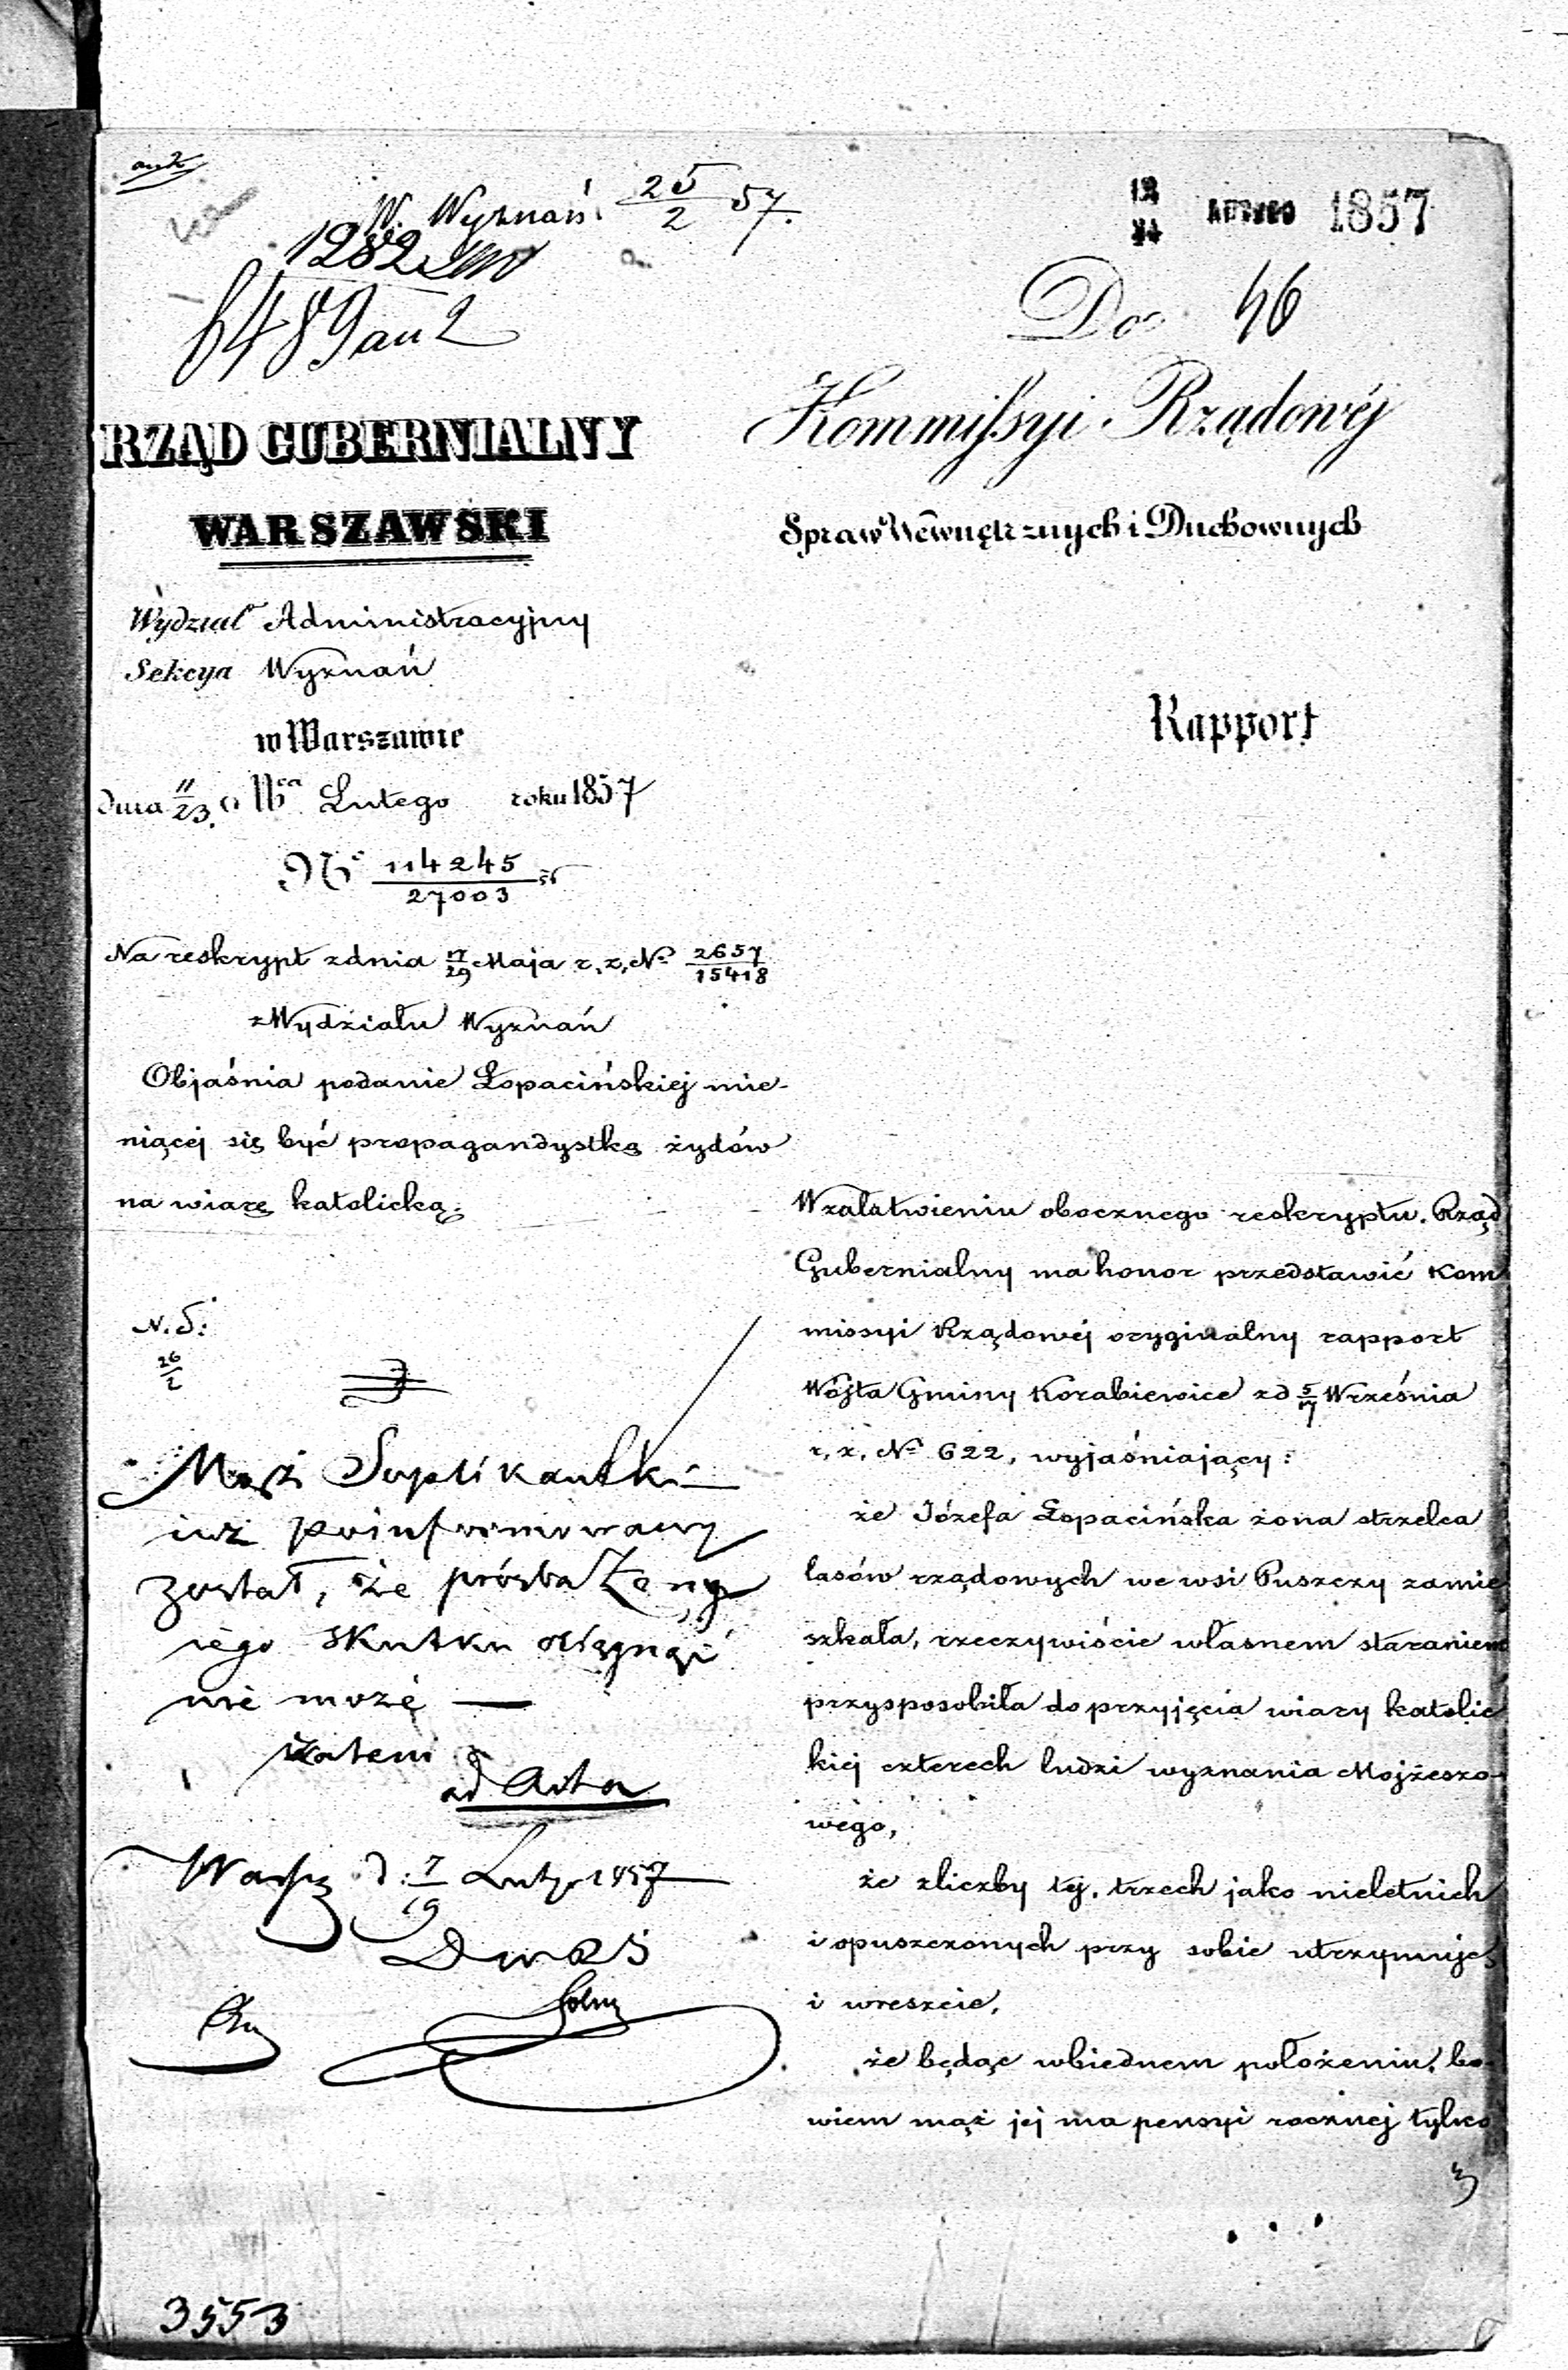 W. Wyznań 25/2 57.
1282
6489 au 2
12/24 LUTEGO 1857
Do 46
Kommissyi Rządowéj
Spraw Wewnętrznych i Duchownych
Rapport
RZĄD GUBERNIALNY
WARSZAWSKI
Wydział Administracyjny
Sekcya Wyznań
w Warszawie
dnia 11/23 Lutego roku 1857
No 114245/27003
Na reskrypt z dnia 17/29 Maja r. z. No 2657/15418
z Wydziału Wyznań
Objaśnia podanie Łopacińskiej mie-
niącej się być propagandystką żydów
na wiarę katolicką.
N. S:
26/2
Mąż Suplikantki
już poinformowany
został, że prośba Żony
jego skutku osiągnąć
nie może —
zatem
ad Acta
Warsz d: 7/19 Lutego 1857
3553
W załatwieniu obocznego reskryptu. Rząd
Gubernialny ma honor przedstawić Kom
missyi Rządowéj oryginalny rapport
Wójta Gminy Korabiewice z d 5/17 Września
r. z. No 622, wyjaśniający:
że Józefa Łopacińska żona strzelca
lasów rządowych we wsi Puszczy zamie
szkała, rzeczywiście własnem staraniem
przysposobiła do przyjęcia wiary katolic
kiej czterech ludzi wyznania Mojżeszo-
wego,
że z liczby tej, trzech jako nieletnich
i opuszczonych przy sobie utrzymuje,
i wreszcie,
że będąc w biednem położeniu, bo-
wiem mąż jej ma pensyi rocznej tylko